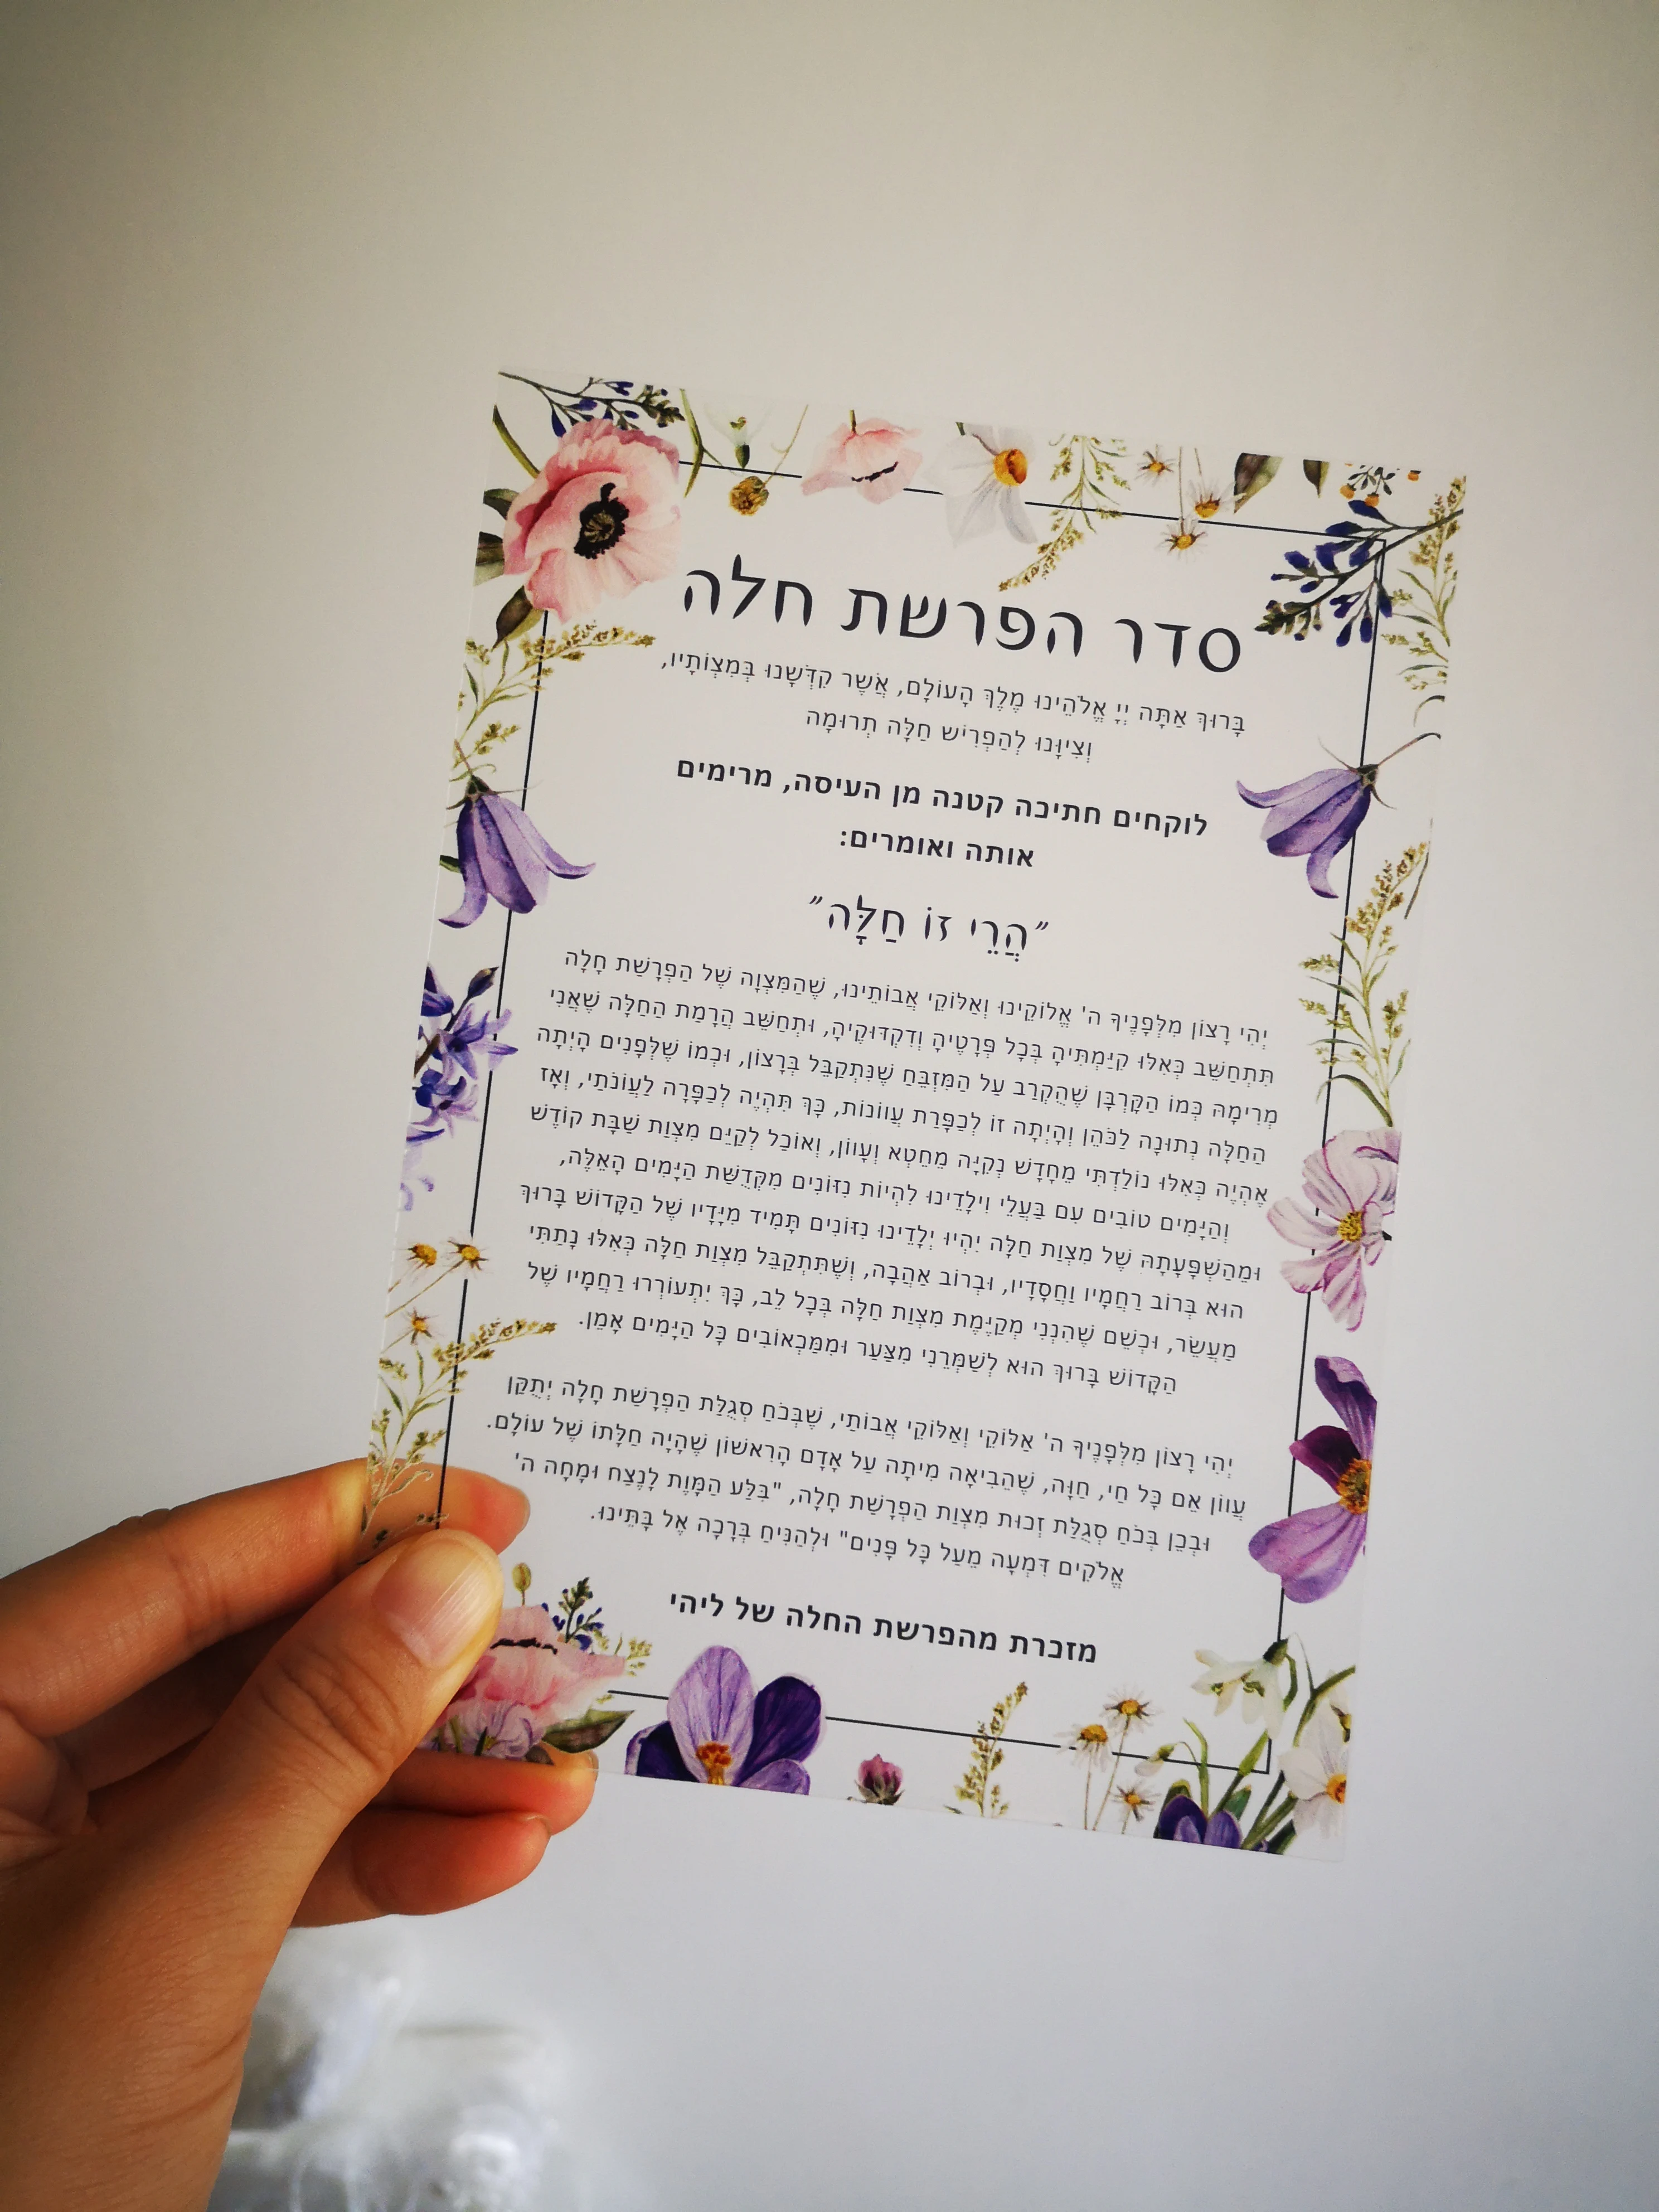 סדר הפרשת חלה
בָּרוּךְ אַתָּה יְיָ אֱלֹהֵינוּ מֶלֶךְ הָעוֹלָם, אֲשֶׁר קִדְּשָׁנוּ בְּמִצְוֹתָיו,
וְצִיוָּנוּ לְהַפְרִישׁ חַלָּה תְּרוּמָה
לוקחים חתיכה קטנה מן העיסה, מרימים
אותה ואומרים:
"הֲרֵי זוֹ חַלָּה"
יְהִי רָצוֹן מִלְּפָנֶיךָ ה' אֱלוֹקֵינוּ וְאֵלוֹקֵי אֲבוֹתֵינוּ, שֶׁהַמִּצְוָה שֶׁל הַפְרָשַׁת חָלָה
תִּתְחַשֵּׁב כְּאִלּוּ קִיַּמְתִּיהָ בְּכָל פְּרָטֶיהָ וְדִקְדּוּקֶיהָ, וּתְחַשֵּׁב הֲרָמַת הַחַלָּה שֶׁאֲנִי
מְרִימָהּ כְּמוֹ הַקָּרְבָּן שֶׁהֻקְרַב עַל הַמִּזְבֵּחַ שֶׁנִּתְקַבֵּל בְּרָצוֹן, וּכְמוֹ שֶׁלְּפָנִים הָיְתָה
הַחַלָּה נְתוּנָה לַכֹּהֵן וְהָיְתָה זוֹ לְכַפָּרַת עֲווֹנוֹת, כָּךְ תִּהְיֶה לְכַפָּרָה לַעֲוֹנֹתַי, וְאָז
אֶהְיֶה כְּאִלּוּ נוֹלַדְתִּי מֵחָדָשׁ נְקִיָּה מֵחֵטְא וְעָווֹן, וְאוּכַל לְקַיֵּם מִצְוַת שַׁבָּת קוֹדֶשׁ
וְהַיָּמִים טוֹבִים עִם בַּעֲלִי וִילָדֵינוּ לִהְיוֹת נִזּוֹנִים מִקְּדֻשַּׁת הַיָּמִים הָאֵלֶּה,
וּמֵהַשְׁפָּעָתָהּ שֶׁל מִצְוַת חַלָּה יִהְיוּ יְלָדֵינוּ נִזּוֹנִים תָּמִיד מִיָּדָיו שֶׁל הַקָּדוֹשׁ בָּרוּךְ
הוּא בְּרוֹב רַחֲמָיו וַחֲסָדָיו, וּבְרוֹב אַהֲבָה, וְשֶׁתִּתְקַבֵּל מִצְוַת חַלָּה כְּאִלּוּ נָתַתִּי
מַעֲשֵׂר, וּכְשֵׁם שֶׁהִנְנִי מְקַיֶּמֶת מִצְוַת חַלָּה בְּכָל לֵב, כָּךְ יִתְעוֹרְרוּ רַחֲמָיו שֶׁל
הַקָּדוֹשׁ בָּרוּךְ הוּא לְשָׁמְּרֵנִי מִצַּעַר וּמִמַּכְאוֹבִים כָּל הַיָּמִים אָמֵן.
יְהִי רָצוֹן מִלְּפָנֶיךָ ה' אֵלוֹקַי וְאֵלוֹקֵי אֲבוֹתַי, שֶׁבְּכֹחַ סְגֻלַּת הַפְרָשַׁת חָלָה יְתֻקַּן
עֲווֹן אֵם כָּל חַי, חַוָּה, שֶׁהֵבִיאָה מִיתָה עַל אָדָם הָרִאשׁוֹן שֶׁהָיָה חַלָּתוֹ שֶׁל עוֹלָם.
וּבְכֵן בְּכֹחַ סְגֻלַּת זְכוּת מִצְוַת הַפְרָשַׁת חָלָה, "בִּלַּע הַמָּוֶת לָנֶצַח וּמָחָה ה'
אֱלֹקִים דִּמְעָה מֵעַל כָּל פָּנִים" וּלְהַנִּיחַ בְּרָכָה אֶל בָּתֵּינוּ.
מזכרת מהפרשת החלה של ליהי